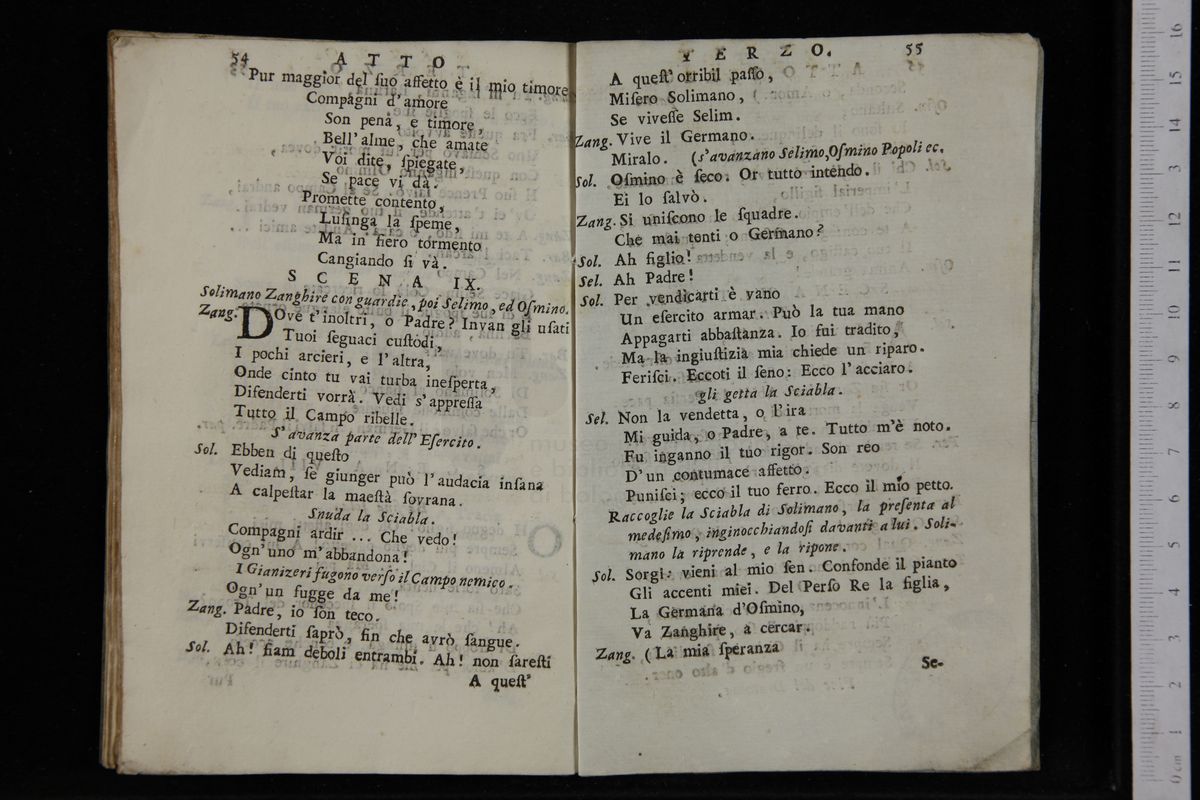 54 ATTO
Pur maggior del ſuo affetto è il mio timore
Compagni d'amore
Son pena, e timore,
Bell'alme, che amate
Voi dite, ſpiegate,
Se pace vi dà.
Promette contento,
Luſinga la ſpeme,
Ma in fiero tormento
Cangiando ſi và.
SCENA IX.
Solimano Zanghire con guardie, poi Selimo, ed Oſmino.
Zang. DOve t'inoltri, o Padre? Invan gli uſati
Tuoi ſeguaci cuſtodi,
I pochi arcieri, e l'altra,
Onde cinto tu vai turba ineſperta,
Difenderti vorrà. Vedi s'appreſſa
Tutto il Campo ribelle.
S'avanza parte dell'Eſercito.
Sol. Ebben di queſto
Vediam, ſe giunger può l'audacia inſana
A calpeſtar la maeſtà ſovrana.
Snuda la Sciabla.
Compagni ardir ... Che vedo!
Ogn'uno m'abbandona!
I Gianizeri fugono verſo il Campo nemico.
Ogn'un fugge da me!
Zang. Padre, io ſon teco.
Difenderti ſaprò, fin che avrò ſangue.
Sol. Ah! ſiam deboli entrambi. Ah! non ſareſti
A queſt'
TERZO. 55
A queſt'orribil paſſo,
Miſero Solimano,
Se viveſſe Selim.
Zang. Vive il Germano.
Miralo. (s'avanzano Selimo,Oſmino Popoli ec.
Sol. Oſmino è ſeco. Or tutto intendo.
Ei lo ſalvò.
Zang. Si uniſcono le ſquadre.
Che mai tenti o Germano?
Sol. Ah figlio!
Sel. Ah Padre!
Sol. Per vendicarti è vano
Un eſercito armar. Può la tua mano
Appagarti abbaſtanza. Io fui tradito,
Ma la ingiuſtizia mia chiede un riparo.
Feriſci. Eccoti il ſeno: Ecco l'acciaro.
gli getta la Sciabla.
Sel. Non la vendetta, o l'ira
Mi guida, o Padre, a te. Tutto m'è noto.
Fu inganno il tuo rigor. Son reo
D'un contumace affetto.
Puniſci; ecco il tuo ferro. Ecco il mio petto.
Raccoglie la Sciabla di Solimano, la preſenta al
medeſimo, inginocchiandoſi davanti a lui. Soli-
mano la riprende, e la ripone.
Sol. Sorgi: vieni al mio ſen. Confonde il pianto
Gli accenti miei. Del Perſo Re la figlia,
La Germana d'Oſmino,
Va Zanghire, a cercar.
Zang. (La mia ſperanza
Se-
0 cm 1 2 3 4 5 6 7 8 9 10 11 12 13 14 15 16